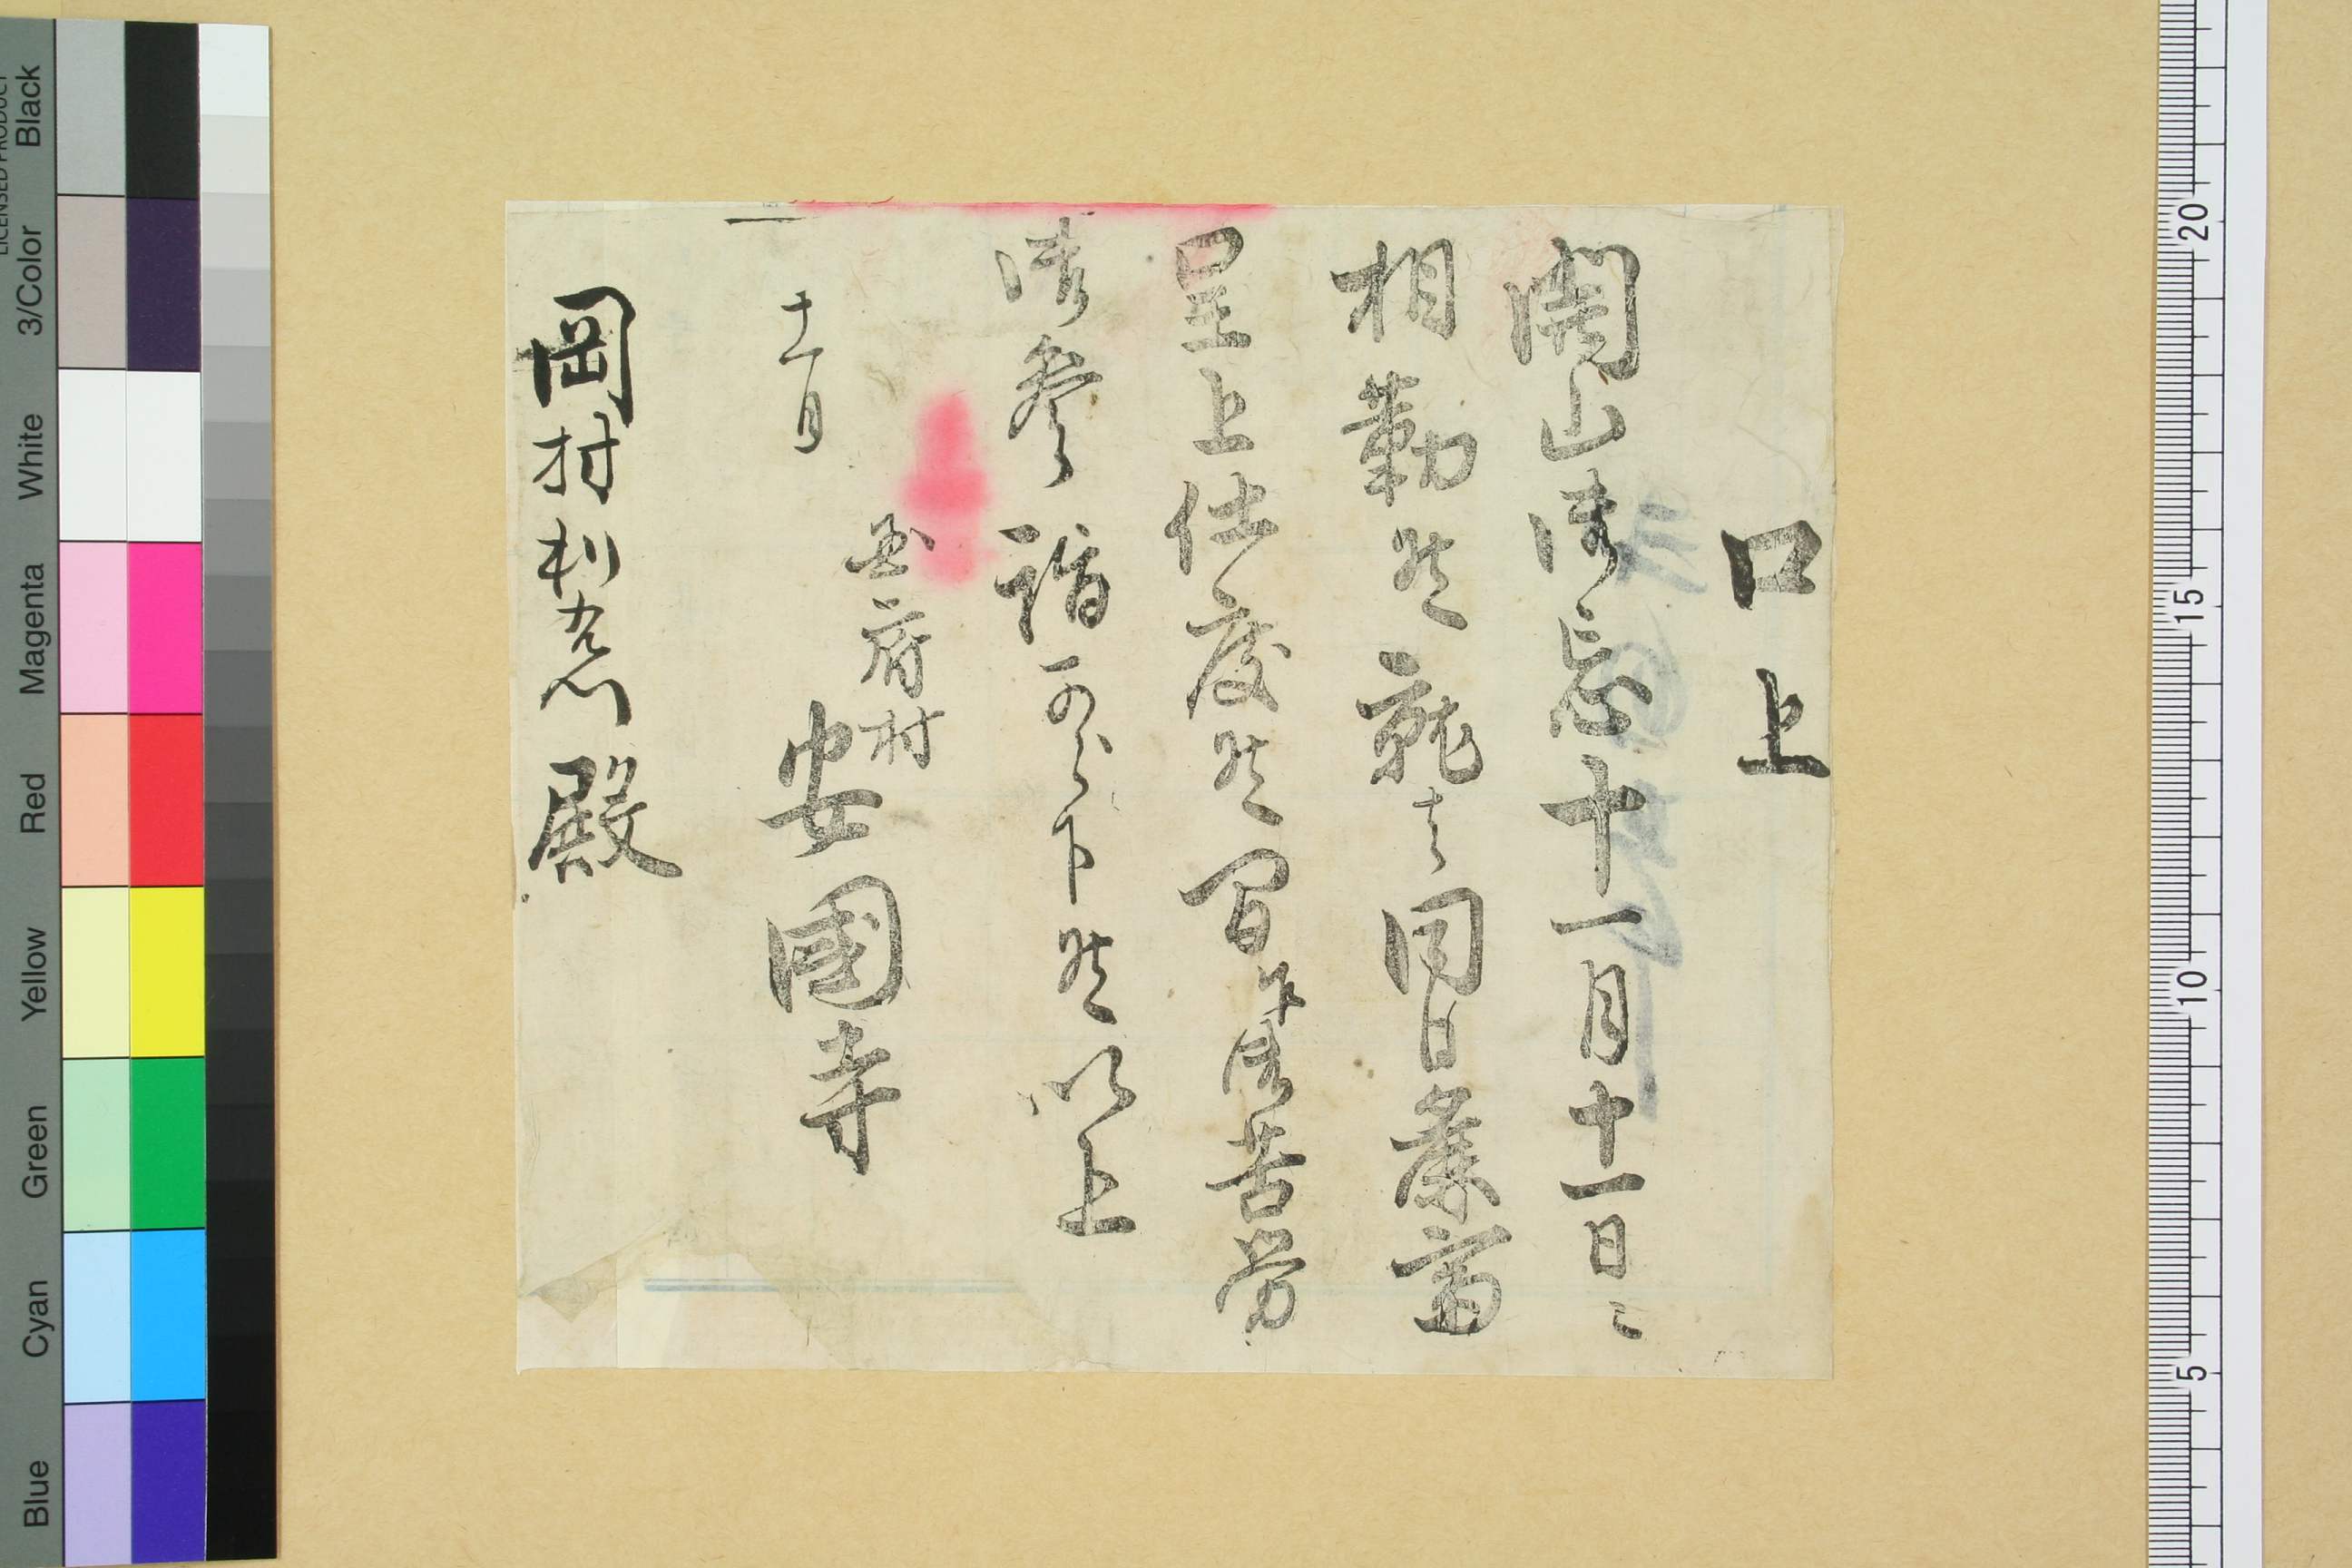 口上
開山御忌十一月十一日ニ
相勤候就夫同日麁斎
呈上仕度候間乍御苦労
御参詣可被下候以上
十一月
国府村
安國寺
岡村利右衛門殿
Black
3/Color
White
Magenta
Red
Yellow
Green
Cyan
Blue
LICENSED PRODUCT
20
15
10
5